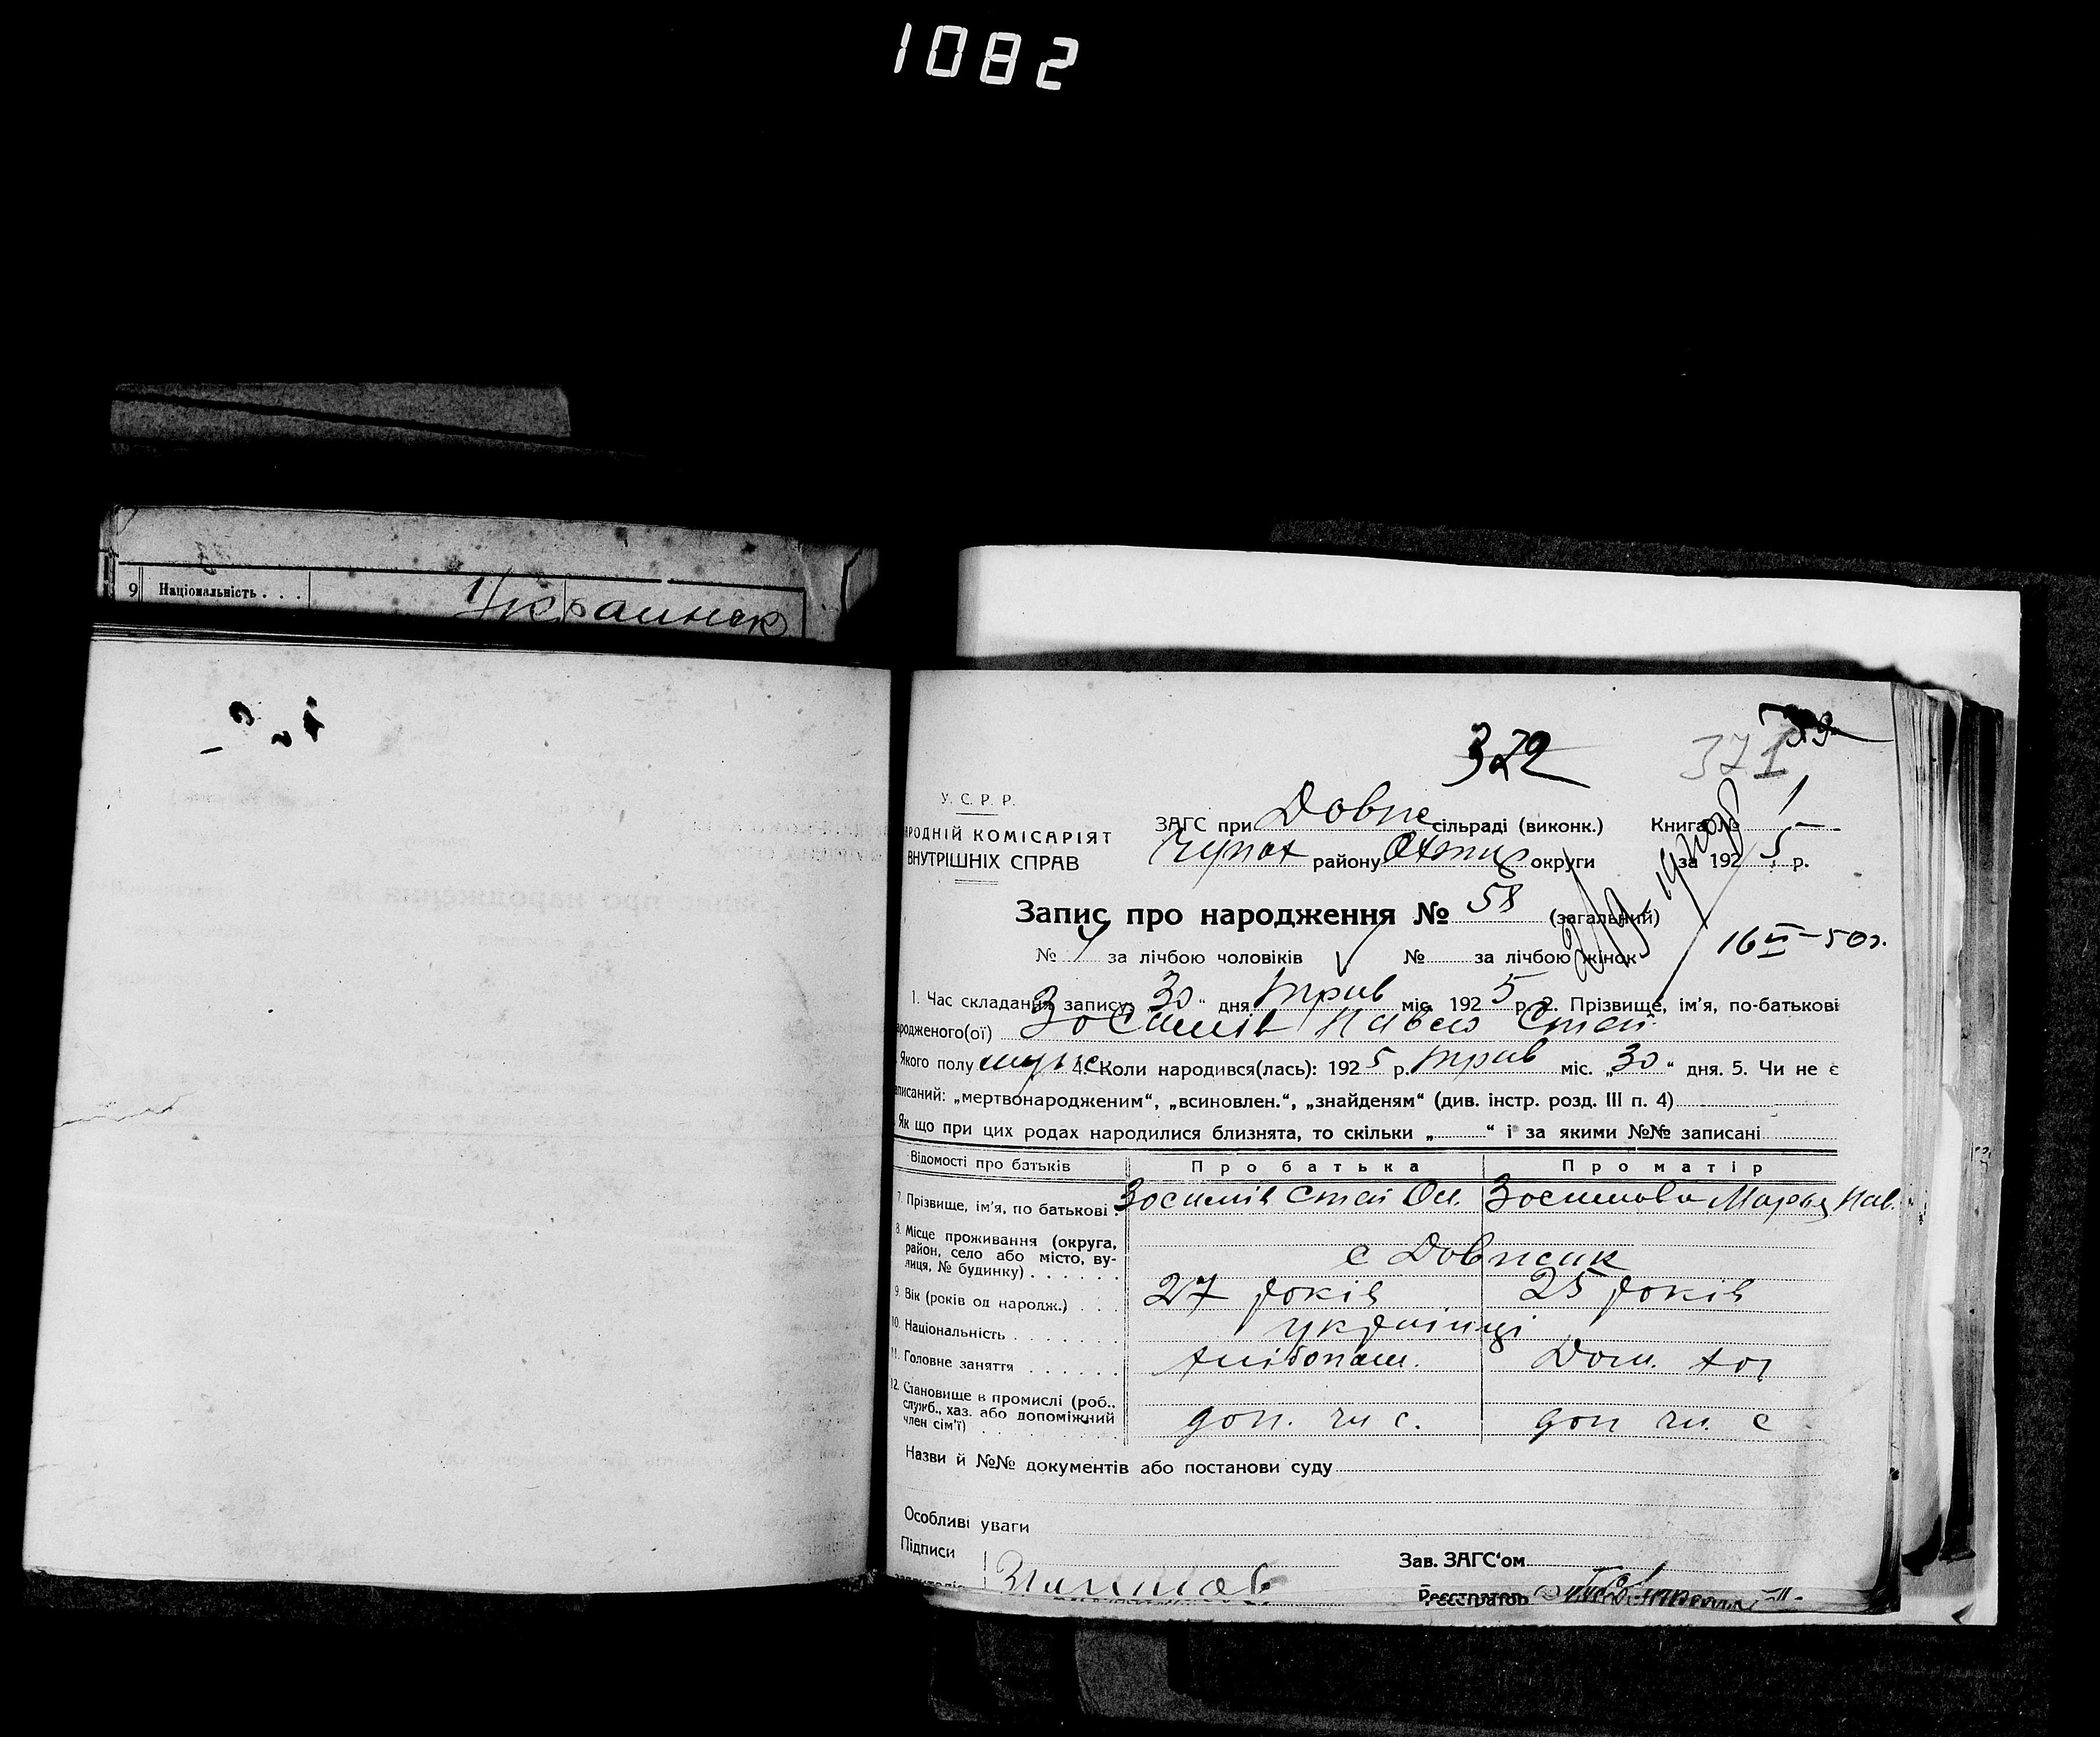 1082
9 Національність . . .
Украинск
322
371
У. С. Р. Р.
РОДНІЙ КОМІСАРІЯТ
ВНУТРІШНІХ СПРАВ
ЗАГС при Довпс сільраді (виконк.) Книга № 1
Чупах району Охтир округи за 192 5 р.
Запис про народження № 58 (загальний)
№ за лічбою чоловіків № за лічбою жінок
16 VI – 50 г.
1. Час складання запису: 30 " дня трав міс. 192 5 р. 2. Прізвище, ім'я, по-батькові
ародженого(ої) Зосимів Павло Степ
Якого полу муж 4. Коли народився(лась): 192 5 р. трав міс. „ 30 " дня. 5. Чи не є
аписаний: „мертвонародженим", „всиновлен.", „знайденям" (див. інстр. розд. III п. 4)
Як що при цих родах народилися близнята, то скільки „ " і за якими №№ записані
Відомості про батьків Про батька Про матір
7. Прізвище, ім'я, по батькові . Зосимів Степ Ол. Зосимова Марья Пав.
8. Місце проживання (округа,
район, село або місто, ву-
лиця, № будинку) . . . . . .
с Довпсик
9. Вік (років од народж.) . . . 27 років 25 років
10. Національність . . . . . . . українці
11. Головне заняття . . . . . . хлібопаш. Дом. хоз
12. Становище в промислі (роб.,
служб., хаз. або допоміжний
член сім'ї) . . . . . . . . . .
доп. чл с. доп чл. с
Назви й №№ документів або постанови суду
Особливі уваги
Підписи
Зав. ЗАГС'ом
Реєстратор